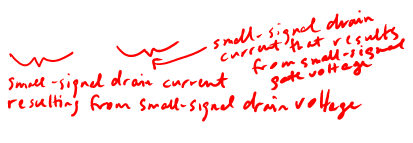 small-signal drain
current that results
from small-signal
gate voltage
small-signal drain current
resulting from small-signal drain voltage